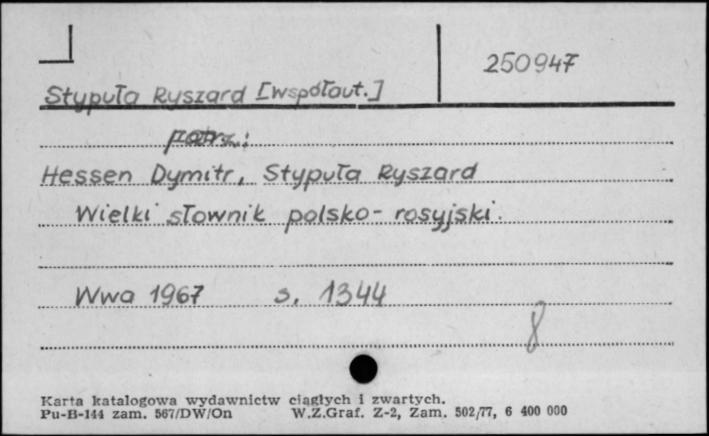 250947
Stypuła Ryszard [współaut.]
patrz:
Hessen Dymitr, Stypuła Ryszard
Wielki słownik polsko-rosyjski.
Wwa 1967 s. 1344
8
Karta katalogowa wydawnictw ciągłych i zwartych.
Pu-B-144 zam. 567/DW/On W.Z.Graf. Z-2, Zam. 502/77, 6 400 000